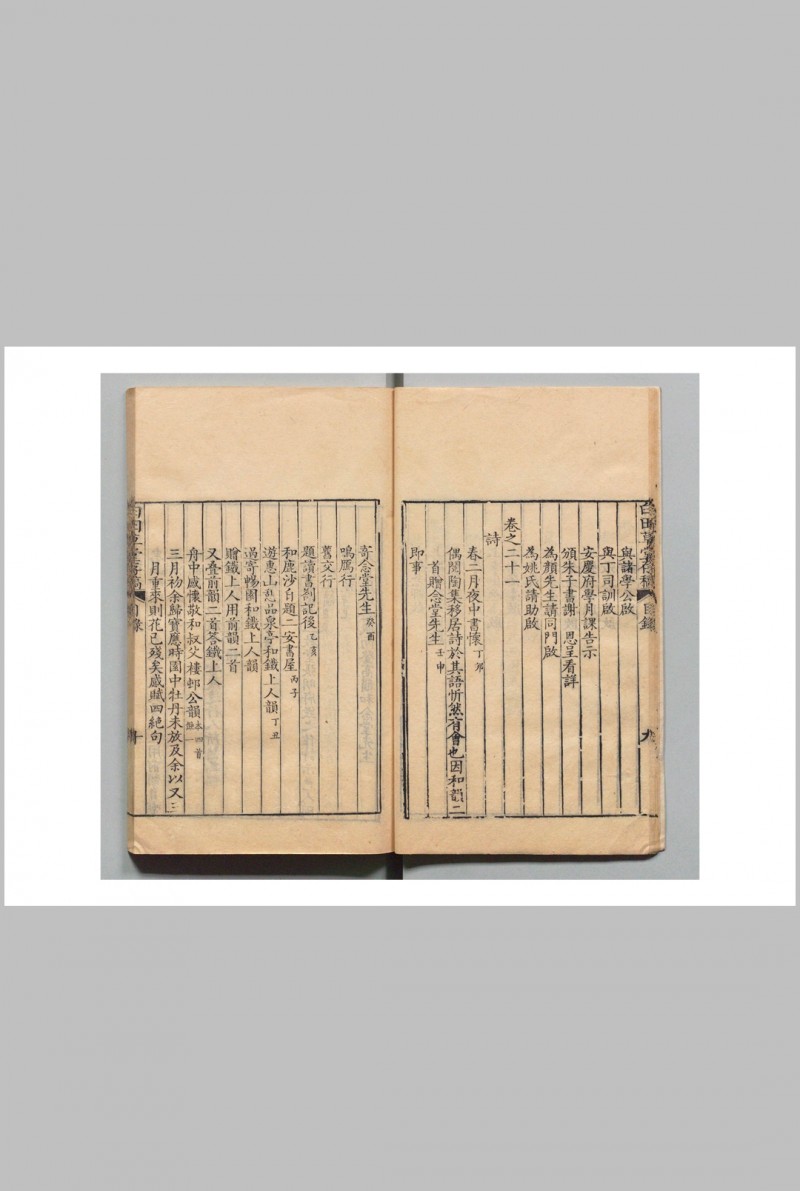 白田草堂存稿 目錄 九
與諸學公啟
與丁司訓啟
安慶府學月課告示
頒朱子書謝 恩呈看詳
為顏先生請同門啟
為姚氏請助啟
卷之二十一
詩
春二月夜中書懷丁卯
偶閱陶集移居詩於其語忻然有會也因和韻二
首贈念堂先生壬申
即事
寄念堂先生癸酉
鳴鴈行
舊交行
題讀書劄記後乙亥
和鹿沙自題二安書屋丙子
遊惠山憇品泉亭和鐵上人韻丁丑
過寄暢園和鐵上人韻
贈鐵上人用前韻二首
又叠前韻二首荅鐵上人
舟中感懷敬和叔父樓邨公韻
三月初余歸寶應時園中牡丹未放及余以又三
月重來則花已殘矣感賦四絕句
白田草堂存稿 目錄 十